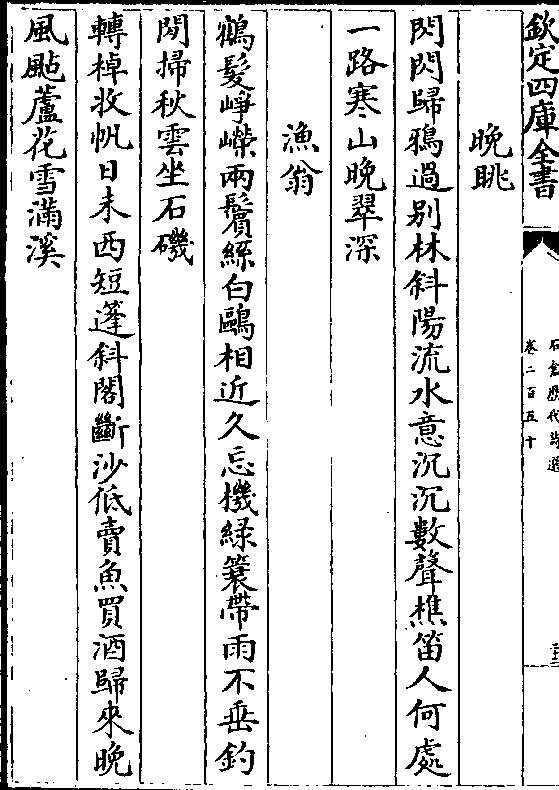 欽定四庫全書
石倉歷代詩選
卷二百五十
晚眺
閃閃歸鴉過别林斜陽流水意沉沉數聲樵笛人何處
一路寒山晚翠深
漁翁
鶴髮崢嶸兩鬢絲白鷗相近久忘機緑簑帶雨不垂釣
閒掃秋雲坐石磯
轉棹收帆日未西短蓬斜閣斷沙低賣魚買酒歸來晚
風颭蘆花雪滿溪